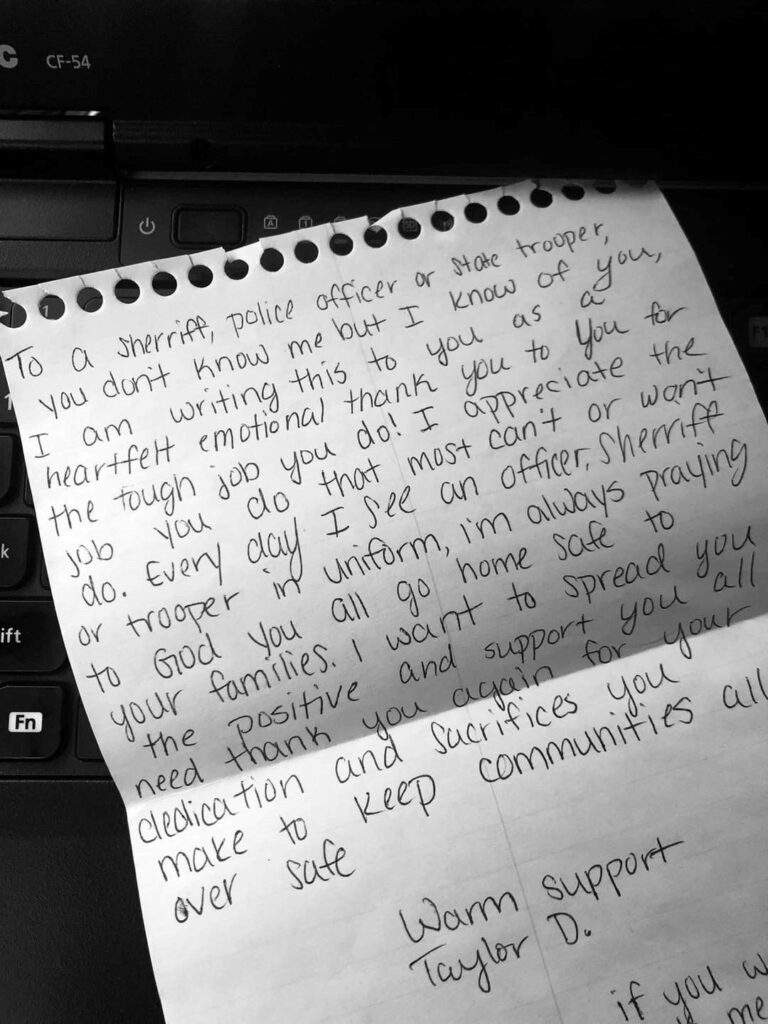 C CF-54
A 1
1
To a sherriff, police officer or state trooper,
you don't know me but I know of you,
I am writing this to you as a
heartfelt emotional thank you to you for
the tough job you do! I appreciate the
job you do that most can't or won't
do. Every day I see an officer, sherriff
or trooper in uniform, i'm always praying
to God you all go home safe to
your families. I want to spread you
the positive and support you all
need thank you again for your
dedication and sacrifices you
make to keep communities all
over safe
Warm support
Taylor D.
if you w
me
k
ift
Fn